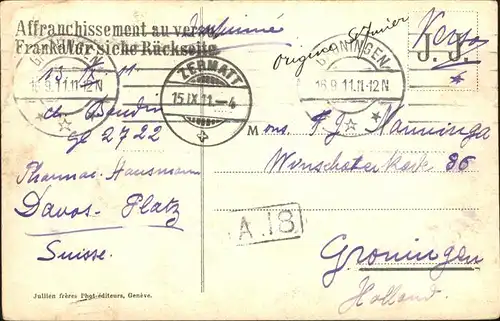 Affranchissement au verso
Frankatur siehe Rückseite
Imprimé
Verso
J. J.
GRONINGEN
16.9.11.11-12N
ZERMATT
15.IX.11.–4
GRONINGEN
16.9.11.11-12N
13. X. 11
2722
Pharmac. Hausmann
Davos-Platz
Suisse.
Mons. F. J. Nanninga
Winschoterkade 36
A.18
Groningen
Holland.
Jullien frères Phot-éditeurs, Genève.